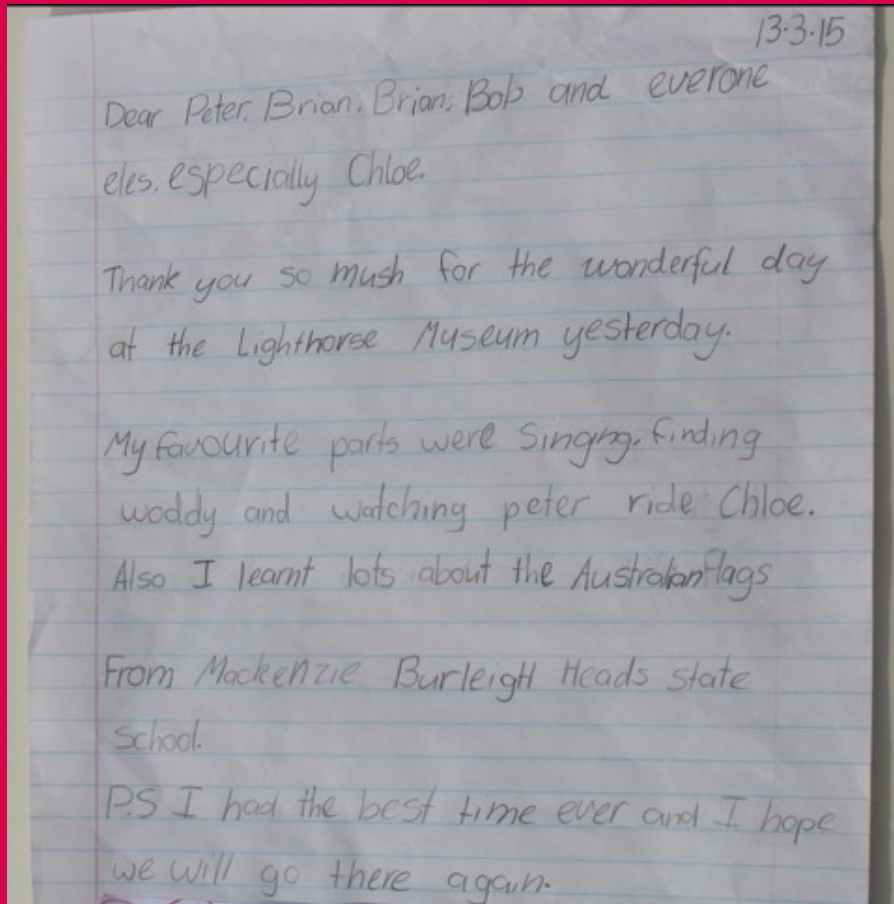 13.3.15
Dear Peter. Brian. Brian. Bob and everone
eles. especially Chloe.
Thank you so mush for the wonderful day
at the Lighthorse Museum yesterday.
My favourite parts were Singing. finding
woddy and watching peter ride Chloe.
Also I learnt lots about the Australian flags
From Mackenzie Burleigh Heads state
School.
P.S I had the best time ever and I hope
we will go there again.